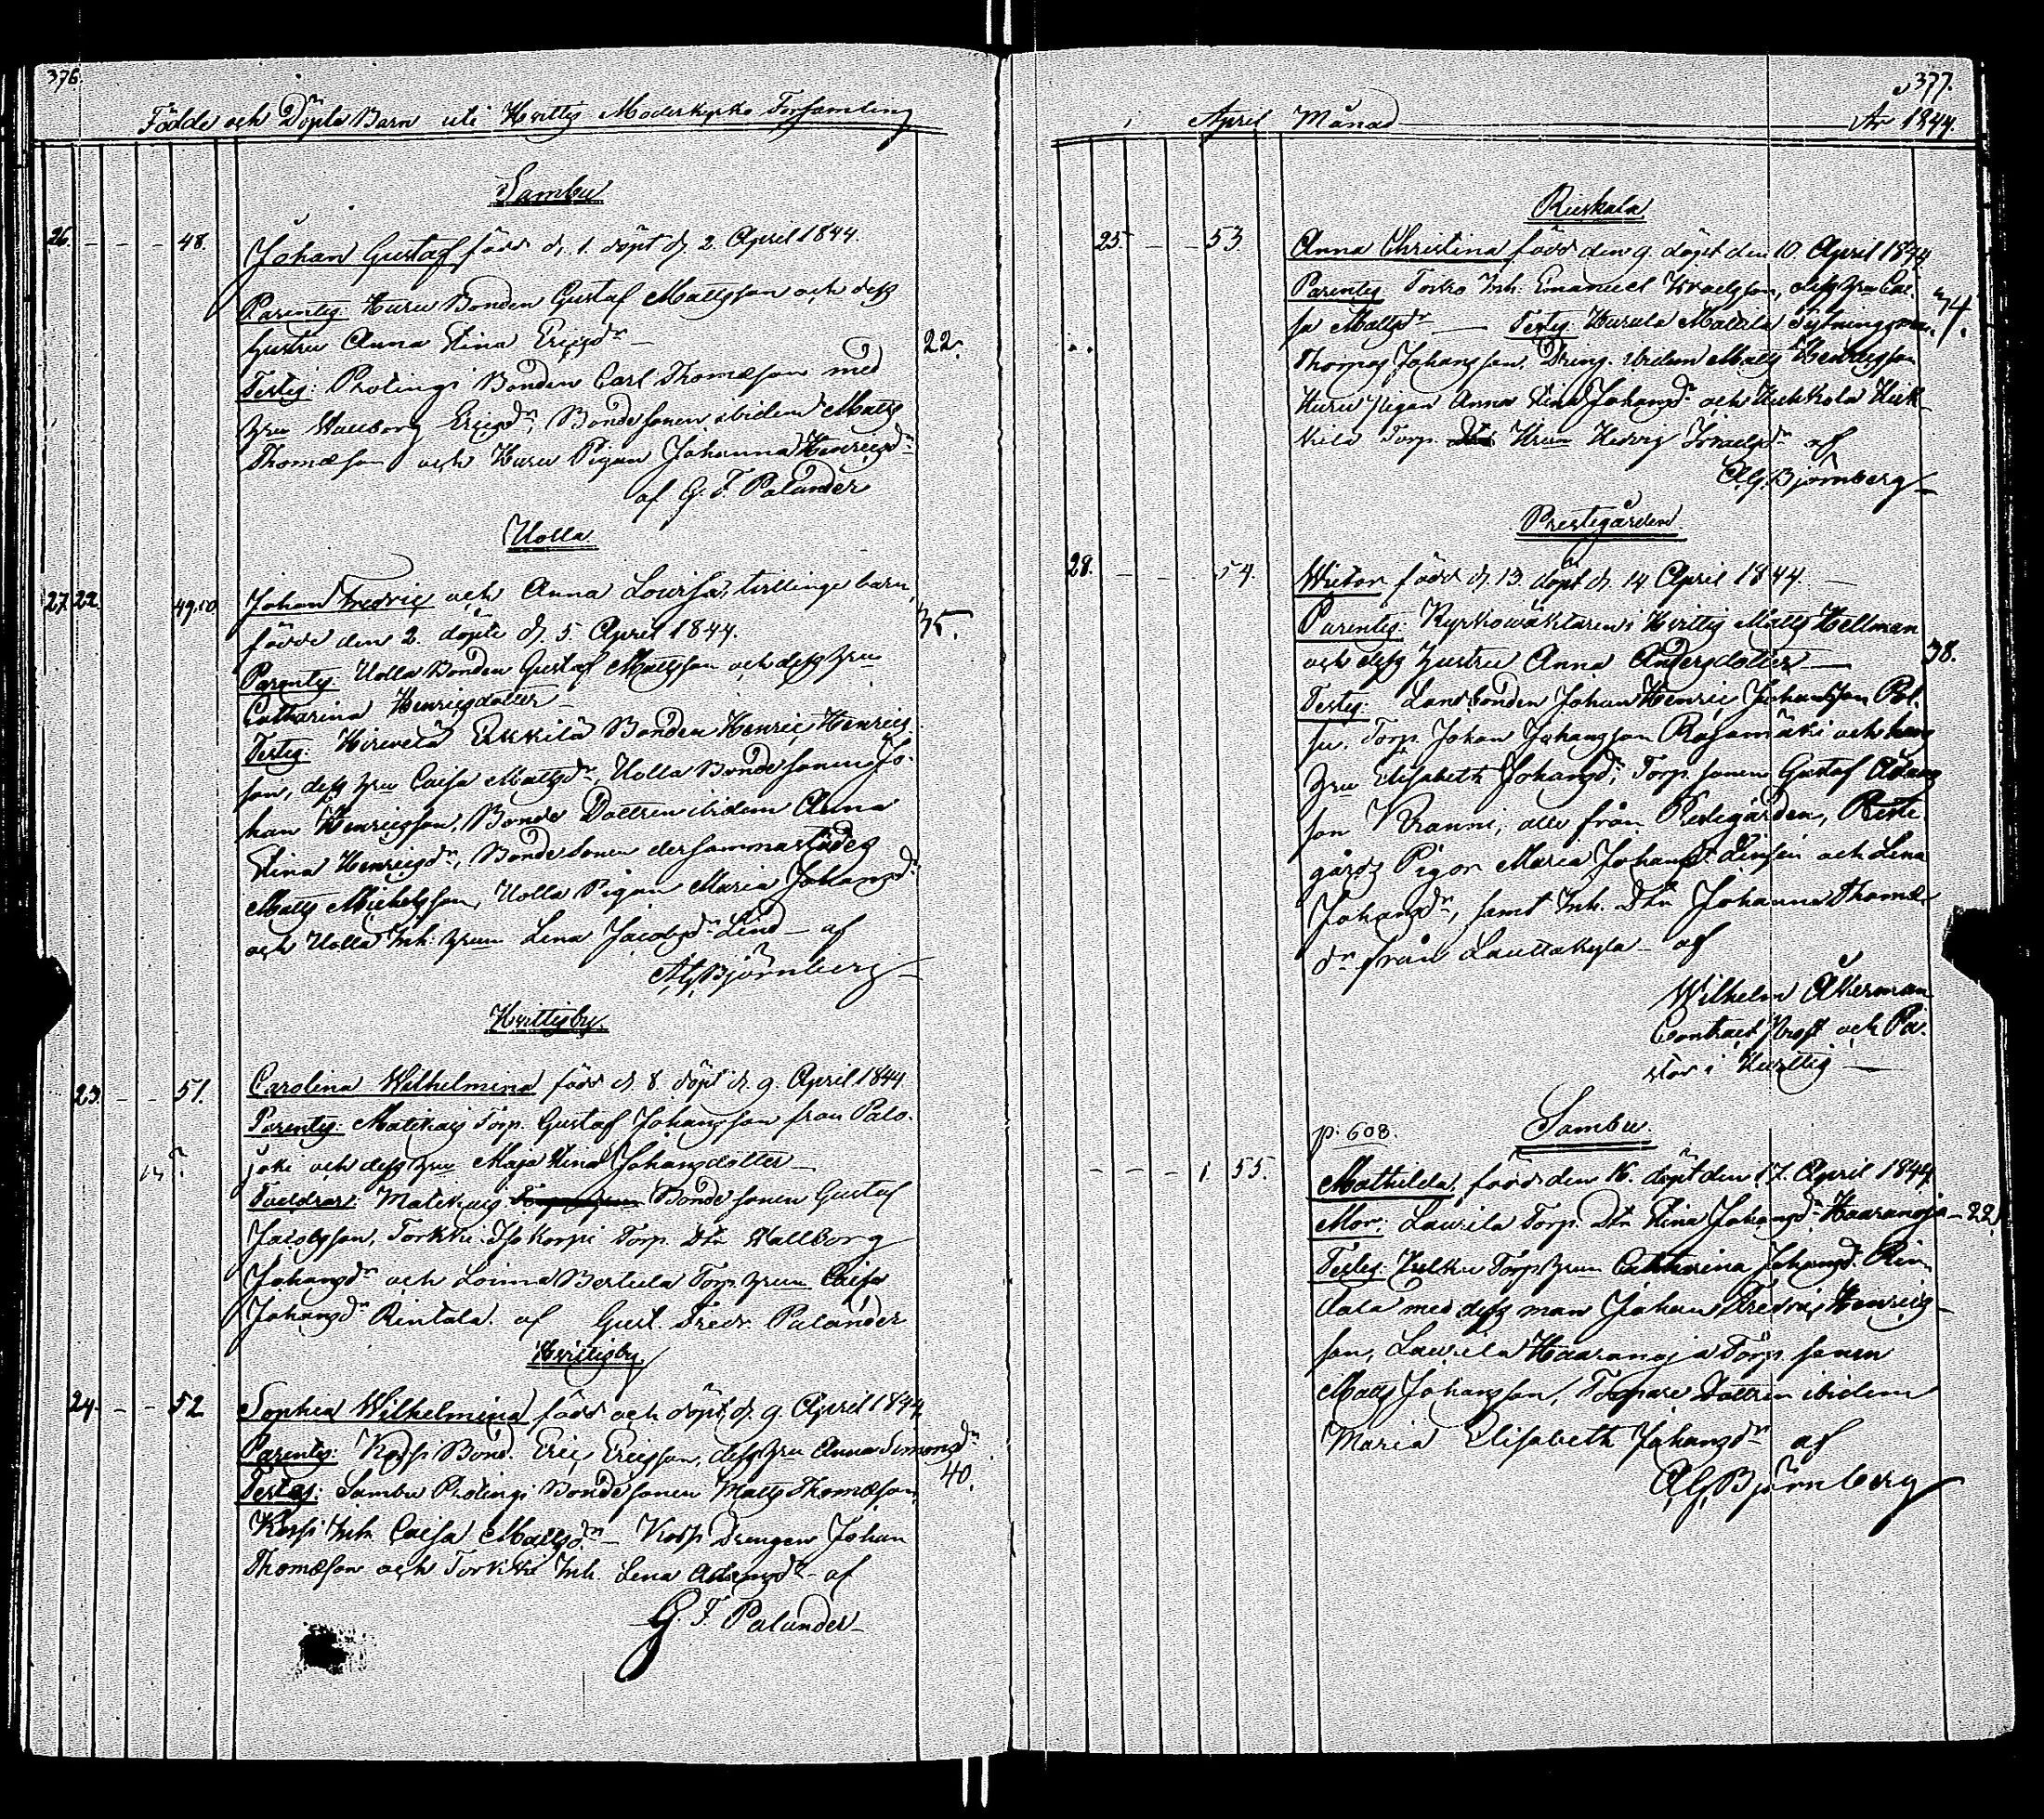 376.
Födde och Döpte Barn uti Hvittis Moderkyrko Församling
Sambu
26. - - - 48.
Johan Gustaf född d. 1. döpt d. 2. April 1844.
Parentes: Huru Bonden Gustaf Mattsson och dess
hustru Anna Stina Ericsdr
22.
Testes: Pholingi Bonden Carl Thomæson med
hru Wallborg Ericsdr, Bondesonen ibidem Matts
Thomæson och Huru Pigan Johanna Henricsdr
af G. F. Palander
Uolla
27. 22. 49.50.
Johan Fredric och Anna Lovisa, tvillinge barn,
födde den 2. döpte d. 5 April 1844.
35.
Parentes: Uolla Bonden Gustaf Mattsson och dess hru
Catharina Henricsdotter
Testes: Hirvelä Erkkilä Bonden Henric Henrics
son, dess hru Caisa Mattsdr, Uolla Bondesonen Jo-
han Henricsson, Bonde Dottren ibidem Anna
Stina Henricsdr, Bondesonen dersammastädes
Matts Michelsson, Uolla Pigan Maria Johansdr
och Uolla Inh. hrun Lena Jacobsdr Lind - af
A.G. Björnberg
Hvittisby
23. - - 51.
Carolina Wilhelmina född d. 8. döpt d. 9. April 1844
Parentes: Matikais Torp. Gustaf Johansson från Palo-
joki och dess hru Maja Stina Johansdotter
Faddrar: Matikais Bondesonen Gustaf
Jacobsson, Torkki Isokorpi Torp. Dtr Wallborg
Johansdr och Loima Bertula Torp. hrun Caisa
Johansdr Rintala. af Gust. Fredr. Palander
Hvittisby
24. - - 52
Sophia Wilhelmina född och döpt d. 9. April 1844.
Parentes: Korsi Bond. Eric Ericsson, dess hru Anna Simonsdr
40.
Testes: Sambu Pholingi Bondesonen Matts Thomæson,
Korsi Inh. Caisa Mattsdr - Korsi Drengen Johan
Thomæson och Torkki Inh. Lena Adamsdr - af
G. F. Palander
377.
April Månad År 1844.
Rieskala
25. - - 53
Anna Christina född den 9. döpt den 10. April 1844
Parentes: Torko Inh. Emanuel Israelsson, dess hru Cai-
sa Mattsdr - Testes: Hurula Mattila
34.
Thomas Johansson, Dreng. ibidem Matts Henricsson
Huru Pigan Anna Stina Johansdr och Kukkola Heik-
kilä Torp. Hrun Hedvig Israelsdr af
A.G. Björnberg
Prestegården
28. - - - 54.
Victor född d. 13. döpt d. 14 April 1844.
Parentes: Kyrkowäktaren i Hvittis Matts Hellman
och dess hustru Anna Andersdotter
38.
Testes: Landbonden Johan Henric Johansson Pol-
su, Torp. Johan Johansson Rajamäki och hans
hru Elisabeth Johansdr, Torp. sonen Gustaf Adams
son Kranni, alla från Prestegården, Preste
gårds Pigor Maria Johansdr och Lena
Johansdr, samt Inh. Dtr Johanna Thomæ
dr från Lauttakylä - af
Wilhelm Åkerman
Contracts Prost och Pa-
stor i Hvittis
p. 608. Sambu
- - - 1. 55.
Mathilda, född den 16. döpt den 17. April 1844.
Mor: Laurila Torp. Dtr Stina Johansdr Haaranoja - 22.
Testes: Torp. hrun Catharina Johansdr Rin-
tala med dess man Johan Fredric Henrics-
son, Laurila Haaranoja Torp. sonen
Matts Johansson, Torpare Dottren ibidem
Maria Elisabeth Johansdr af
A.G. Björnberg